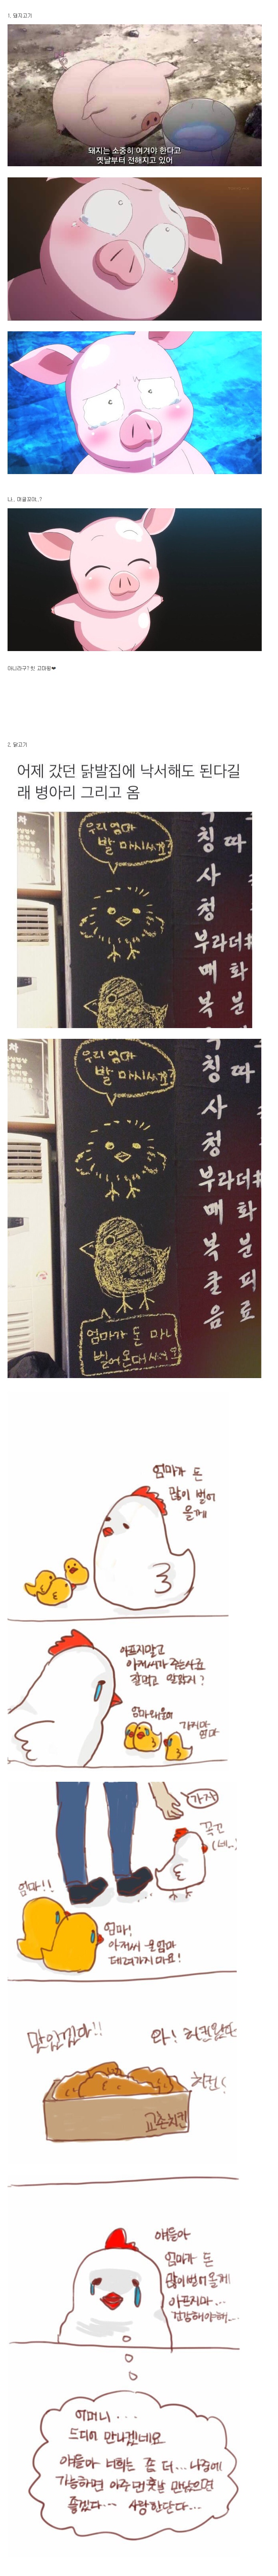 1. 돼지고기
돼지는 소중히 여겨야 한다고
옛날부터 전해지고 있어
나... 먹을꼬야..?
아니라구? 힛 고마웡❤
2. 닭고기
어제 갔던 닭발집에 낙서해도 된다길
래 병아리 그리고 옴
우리엄마
발 마시써요?
칭 따
사
청
부라더#
매 화
복 분
우리엄마
발 마시써요?
칭 따
사
청
부라더#
매 화
복 분
콜 피
음 료
엄마가 돈 마니
벌어온대서요
엄마가 돈
많이 벌어
올게
아프지말고
아저씨가 주는사료
잘먹고 알았지?
가지마
엄마
가자
꼬끼
(네..)
엄마!!
엄마!
아저씨 울엄마
데려가지 마요!
맛있겠다!!
와! 치킨왔다
치킨!
교촌치킨
얘들아
엄마가 돈
많이벌어올게
아프지마...
건강해야해...
어머니...
드디어 만나겠네요
얘들아 너희는 좀 더... 나중에
가능하면 아주 먼 훗날 만났으면
좋겠다... 사랑한단다...